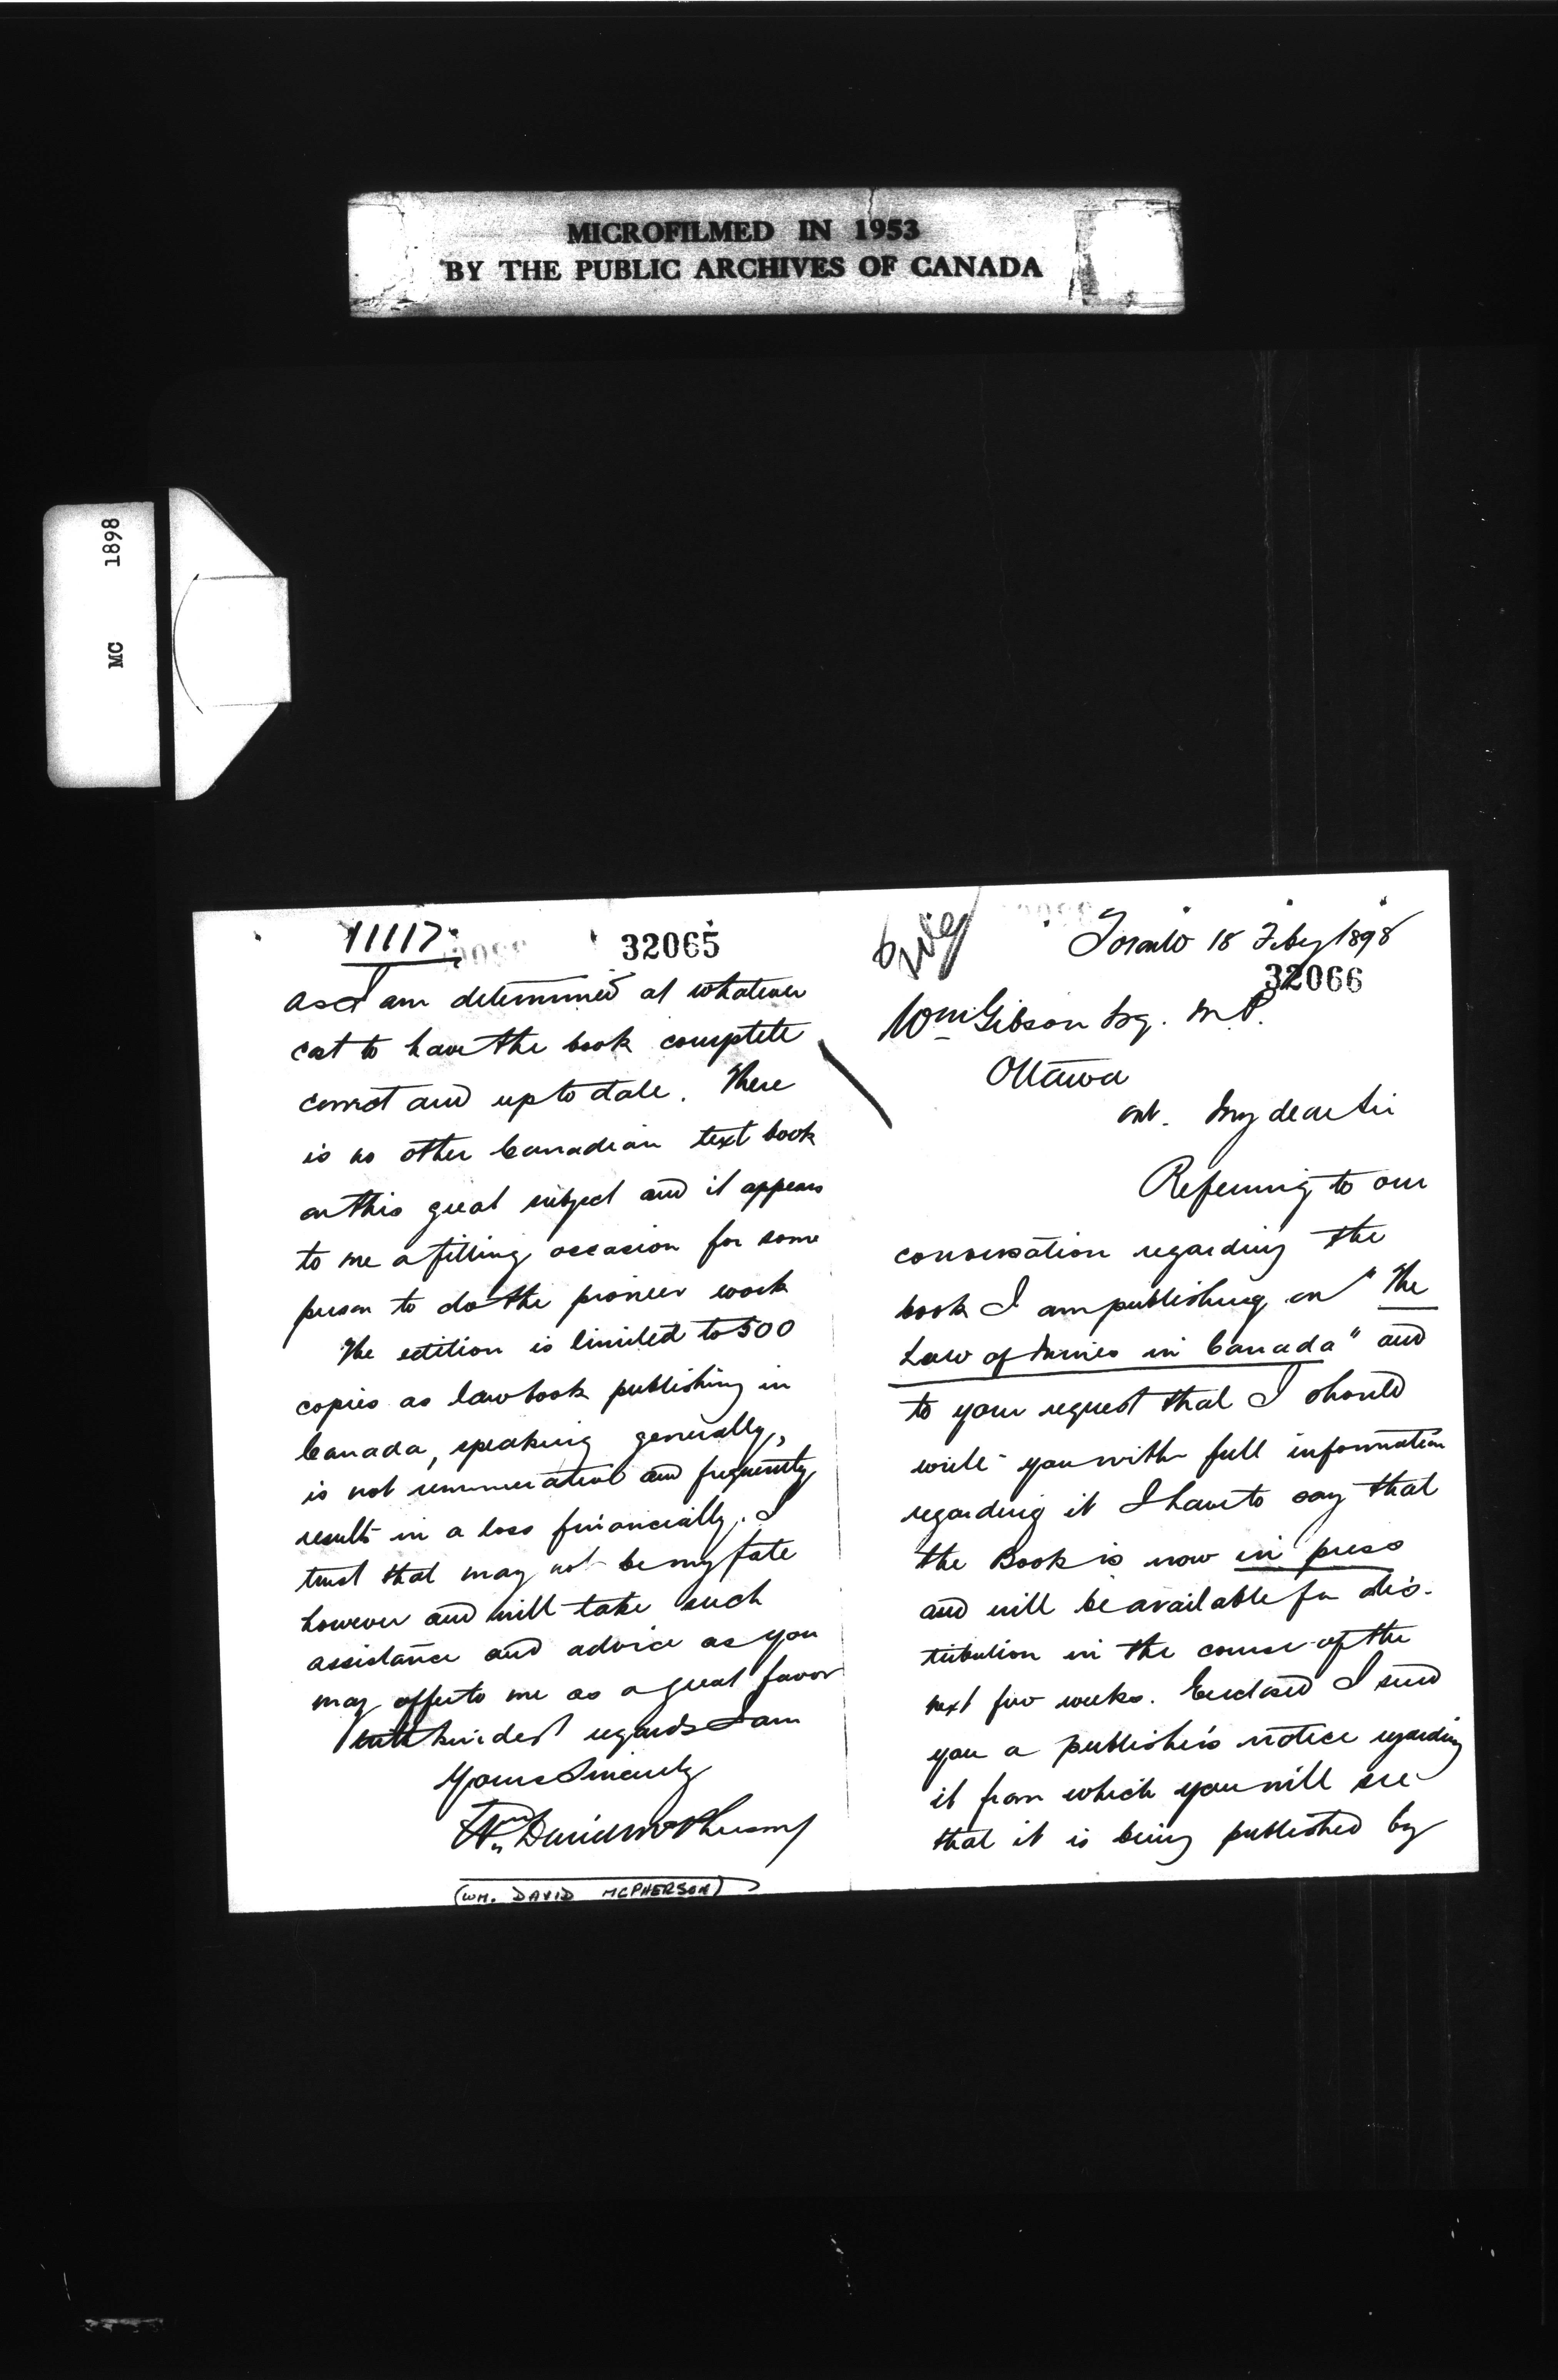 MICROFILMED IN 1953
BY THE PUBLIC ARCHIVES OF CANADA
MC 1898
11117
32065
as I am determined at whatever
cost to have the book complete
correct and up to date. There
is no other Canadian text book
on this great subject and it appears
to me a fitting occasion for some
person to do the pioneer work
The edition is limited to 500
copies as law book publishing in
Canada, speaking generally,
is not remunerative and frequently
results in a loss financially. I
trust that may not be my fate
however and will take such
assistance and advice as you
may offer to me as a great favor
with kindest regards I am
Yours Sincerely
Wm David McPherson
(WM. DAVID MCPHERSON)
Toronto 18 Feby 1898
32066
Wm Gibson Esq. M.P.
Ottawa
Ont. My dear Sir
Referring to our
conversation regarding the
book I am publishing on "The
Law of Mines in Canada" and
to your request that I should
write you with full information
regarding it I have to say that
the Book is now in press
and will be available for dis-
tribution in the course of the
next few weeks. Enclosed I send
you a publisher's notice regarding
it from which you will see
that it is being published by